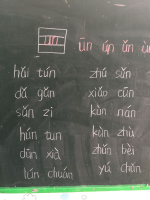 un ūn ún ǔn ùn
hǎi tún zhú sǔn
dǎ gǔn xiāo cūn
sūn zi kùn nán
hún tun kǔn zhù
dūn xià zhǔn bèi
lún chuán yú chǔn